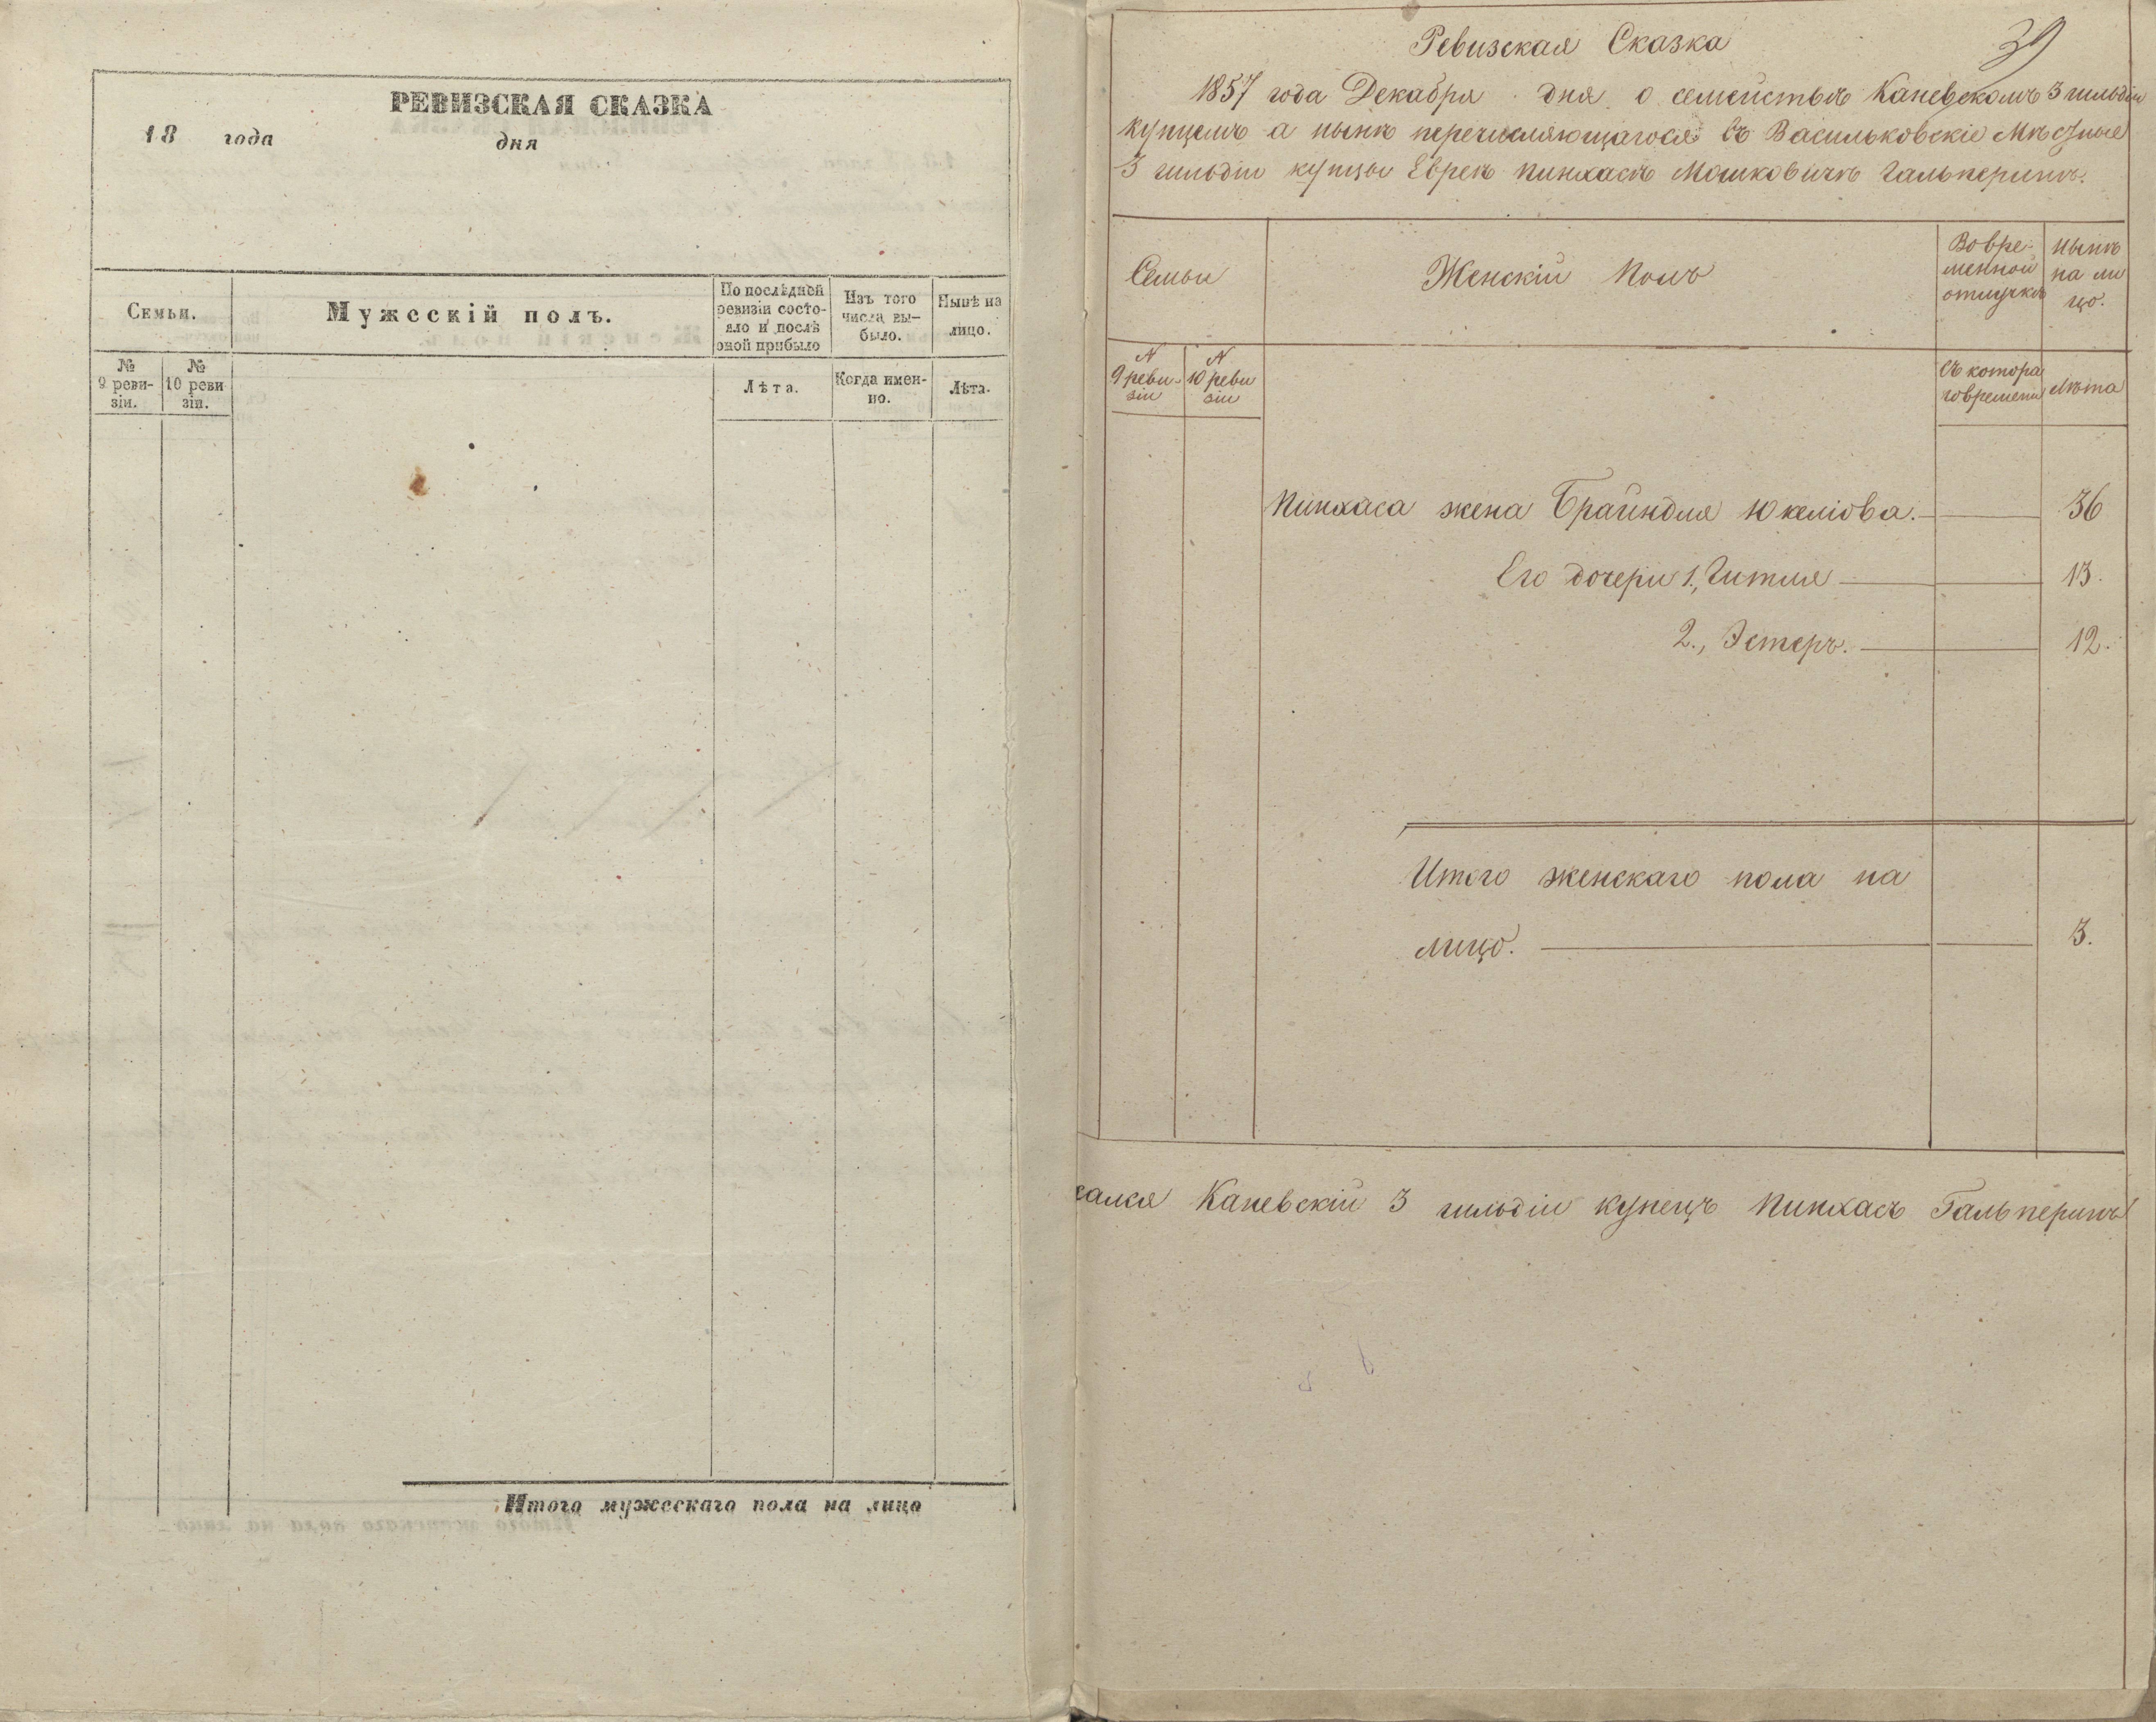 РЕВИЗСКАЯ СКАЗКА
18 года дня
Семьи.
Мужескій полъ.
По послѣдней ревизіи состо-
яло и послѣ оной прибыло
Изъ того числа вы-
было.
Нынѣ на лицо.
№ 9 реви-
зіи.
№ 10 реви
зіи.
Лѣта.
Когда имен-
но.
Лѣта.
Итого мужескаго пола на лицо
39
Ревизская Сказка
1857 года Декабря дня о семействѣ Каневскомъ 3 гильдіи
купцемъ а нынѣ перечисляющагося въ Васильковскіе Мѣстные
3 гильдіи купцы Евреѣ Пинхасъ Мошковичъ Гальперинъ.
Семьи
Женскій Полъ
Во вре-
менной
отлучкѣ
Нынѣ
на ли
цо.
N
9 реви-
зіи
N
10 реви
зіи
Съ котора
го времени
Лѣта
Пинхаса жена Брайндля Юкеліова. 36
Его дочери 1., Гитля 13.
2., Эстеръ. 12.
Итого женскаго пола на
лицо. 3.
сался Каневскій 3 гильдіи купецъ Пинхасъ Гальперинъ